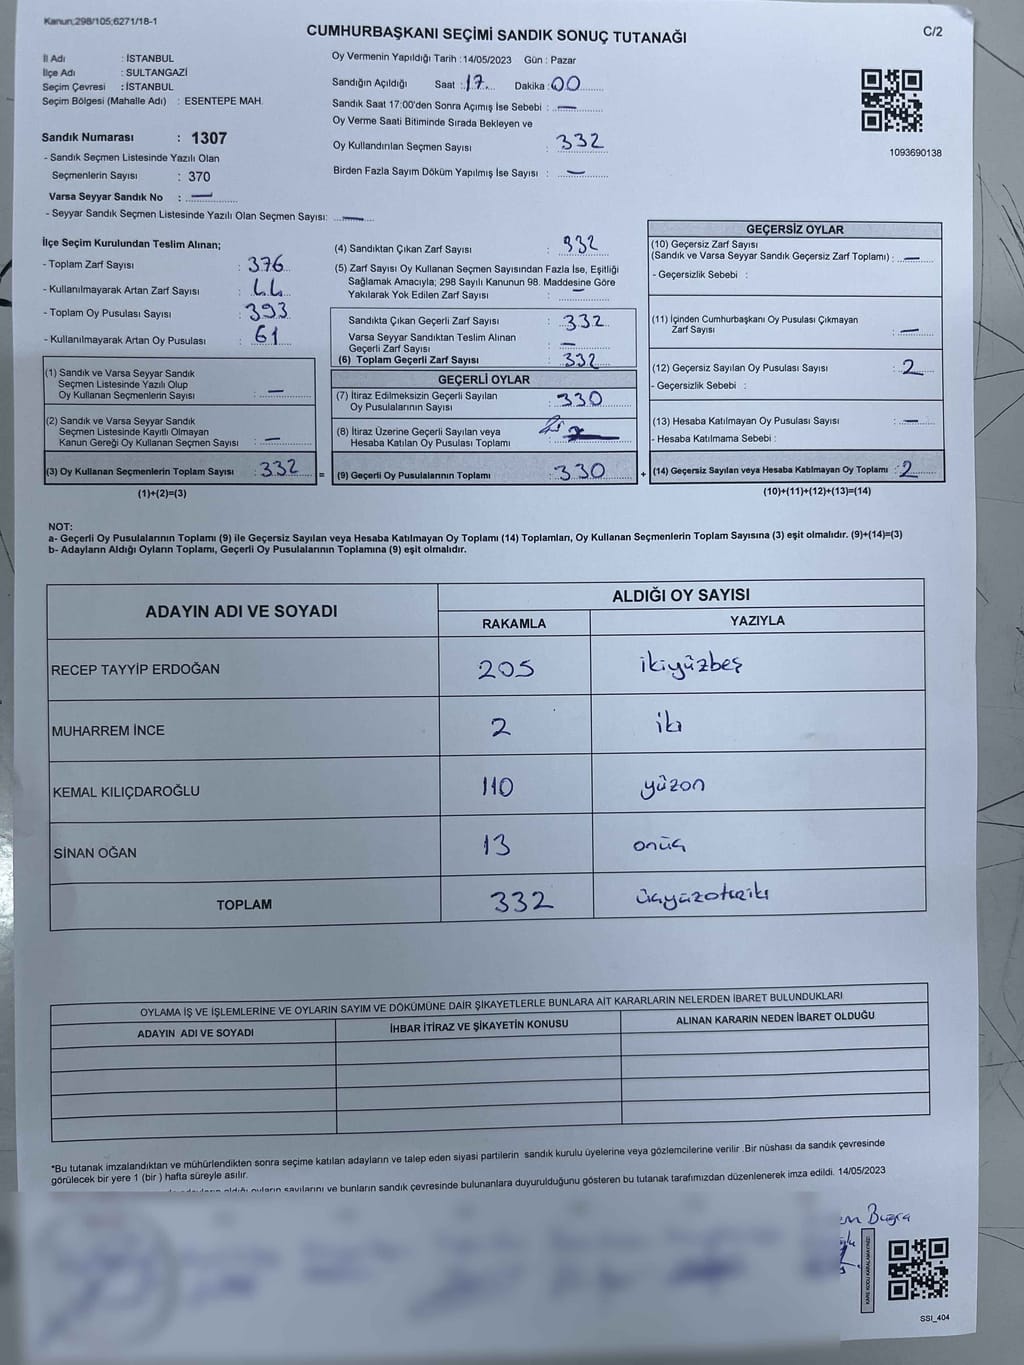 Kanun;298/105;6271/18-1
CUMHURBAŞKANI SEÇİMİ SANDIK SONUÇ TUTANAĞI
C/2
İl Adı : İSTANBUL
İlçe Adı : SULTANGAZİ
Seçim Çevresi : İSTANBUL
Seçim Bölgesi (Mahalle Adı) : ESENTEPE MAH.
Sandık Numarası : 1307
- Sandık Seçmen Listesinde Yazılı Olan
Seçmenlerin Sayısı : 370
Varsa Seyyar Sandık No : —
- Seyyar Sandık Seçmen Listesinde Yazılı Olan Seçmen Sayısı: —
Oy Vermenin Yapıldığı Tarih :14/05/2023 Gün : Pazar
Sandığın Açıldığı Saat :17 Dakika :00
Sandık Saat 17:00'den Sonra Açımış İse Sebebi : —
Oy Verme Saati Bitiminde Sırada Bekleyen ve
Oy Kullandırılan Seçmen Sayısı : 332
Birden Fazla Sayım Döküm Yapılmış İse Sayısı : —
1093690138
İlçe Seçim Kurulundan Teslim Alınan;
- Toplam Zarf Sayısı : 376
- Kullanılmayarak Artan Zarf Sayısı : 44
- Toplam Oy Pusulası Sayısı : 393
- Kullanılmayarak Artan Oy Pusulası : 61
(1) Sandık ve Varsa Seyyar Sandık
Seçmen Listesinde Yazılı Olup
Oy Kullanan Seçmenlerin Sayısı : —
(2) Sandık ve Varsa Seyyar Sandık
Seçmen Listesinde Kayıtlı Olmayan
Kanun Gereği Oy Kullanan Seçmen Sayısı : —
(3) Oy Kullanan Seçmenlerin Toplam Sayısı : 332
(1)+(2)=(3)
=
(4) Sandıktan Çıkan Zarf Sayısı : 332
(5) Zarf Sayısı Oy Kullanan Seçmen Sayısından Fazla İse, Eşitliği
Sağlamak Amacıyla; 298 Sayılı Kanunun 98. Maddesine Göre
Yakılarak Yok Edilen Zarf Sayısı : —
Sandıkta Çıkan Geçerli Zarf Sayısı : 332
Varsa Seyyar Sandıktan Teslim Alınan
Geçerli Zarf Sayısı : —
(6) Toplam Geçerli Zarf Sayısı : 332
GEÇERLİ OYLAR
(7) İtiraz Edilmeksizin Geçerli Sayılan
Oy Pusulalarının Sayısı : 330
(8) İtiraz Üzerine Geçerli Sayılan veya
Hesaba Katılan Oy Pusulası Toplamı :
(9) Geçerli Oy Pusulalarının Toplamı : 330
+
GEÇERSİZ OYLAR
(10) Geçersiz Zarf Sayısı
(Sandık ve Varsa Seyyar Sandık Geçersiz Zarf Toplamı) : —
- Geçersizlik Sebebi :
(11) İçinden Cumhurbaşkanı Oy Pusulası Çıkmayan
Zarf Sayısı : —
(12) Geçersiz Sayılan Oy Pusulası Sayısı : 2
- Geçersizlik Sebebi :
(13) Hesaba Katılmayan Oy Pusulası Sayısı : —
- Hesaba Katılmama Sebebi :
(14) Geçersiz Sayılan veya Hesaba Katılmayan Oy Toplamı : 2
(10)+(11)+(12)+(13)=(14)
NOT:
a- Geçerli Oy Pusulalarının Toplamı (9) ile Geçersiz Sayılan veya Hesaba Katılmayan Oy Toplamı (14) Toplamları, Oy Kullanan Seçmenlerin Toplam Sayısına (3) eşit olmalıdır. (9)+(14)=(3)
b- Adayların Aldığı Oyların Toplamı, Geçerli Oy Pusulalarının Toplamına (9) eşit olmalıdır.
ADAYIN ADI VE SOYADI
ALDIĞI OY SAYISI
RAKAMLA YAZIYLA
RECEP TAYYİP ERDOĞAN 205 ikiyüzbeş
MUHARREM İNCE 2 iki
KEMAL KILIÇDAROĞLU 110 yüzon
SİNAN OĞAN 13 onüç
TOPLAM 332 üçyüzotuziki
OYLAMA İŞ VE İŞLEMLERİNE VE OYLARIN SAYIM VE DÖKÜMÜNE DAİR ŞİKAYETLERLE BUNLARA AİT KARARLARIN NELERDEN İBARET BULUNDUKLARI
ADAYIN ADI VE SOYADI İHBAR İTİRAZ VE ŞİKAYETİN KONUSU ALINAN KARARIN NEDEN İBARET OLDUĞU
*Bu tutanak imzalandıktan ve mühürlendikten sonra seçime katılan adayların ve talep eden siyasi partilerin sandık kurulu üyelerine veya gözlemcilerine verilir .Bir nüshası da sandık çevresinde
görülecek bir yere 1 (bir ) hafta süreyle asılır.
aldığı oyların sayılarını ve bunların sandık çevresinde bulunanlara duyurulduğunu gösteren bu tutanak tarafımızdan düzenlenerek imza edildi. 14/05/2023
Buğra
KARE KODU KARALAMAYINIZ!
SSI_404